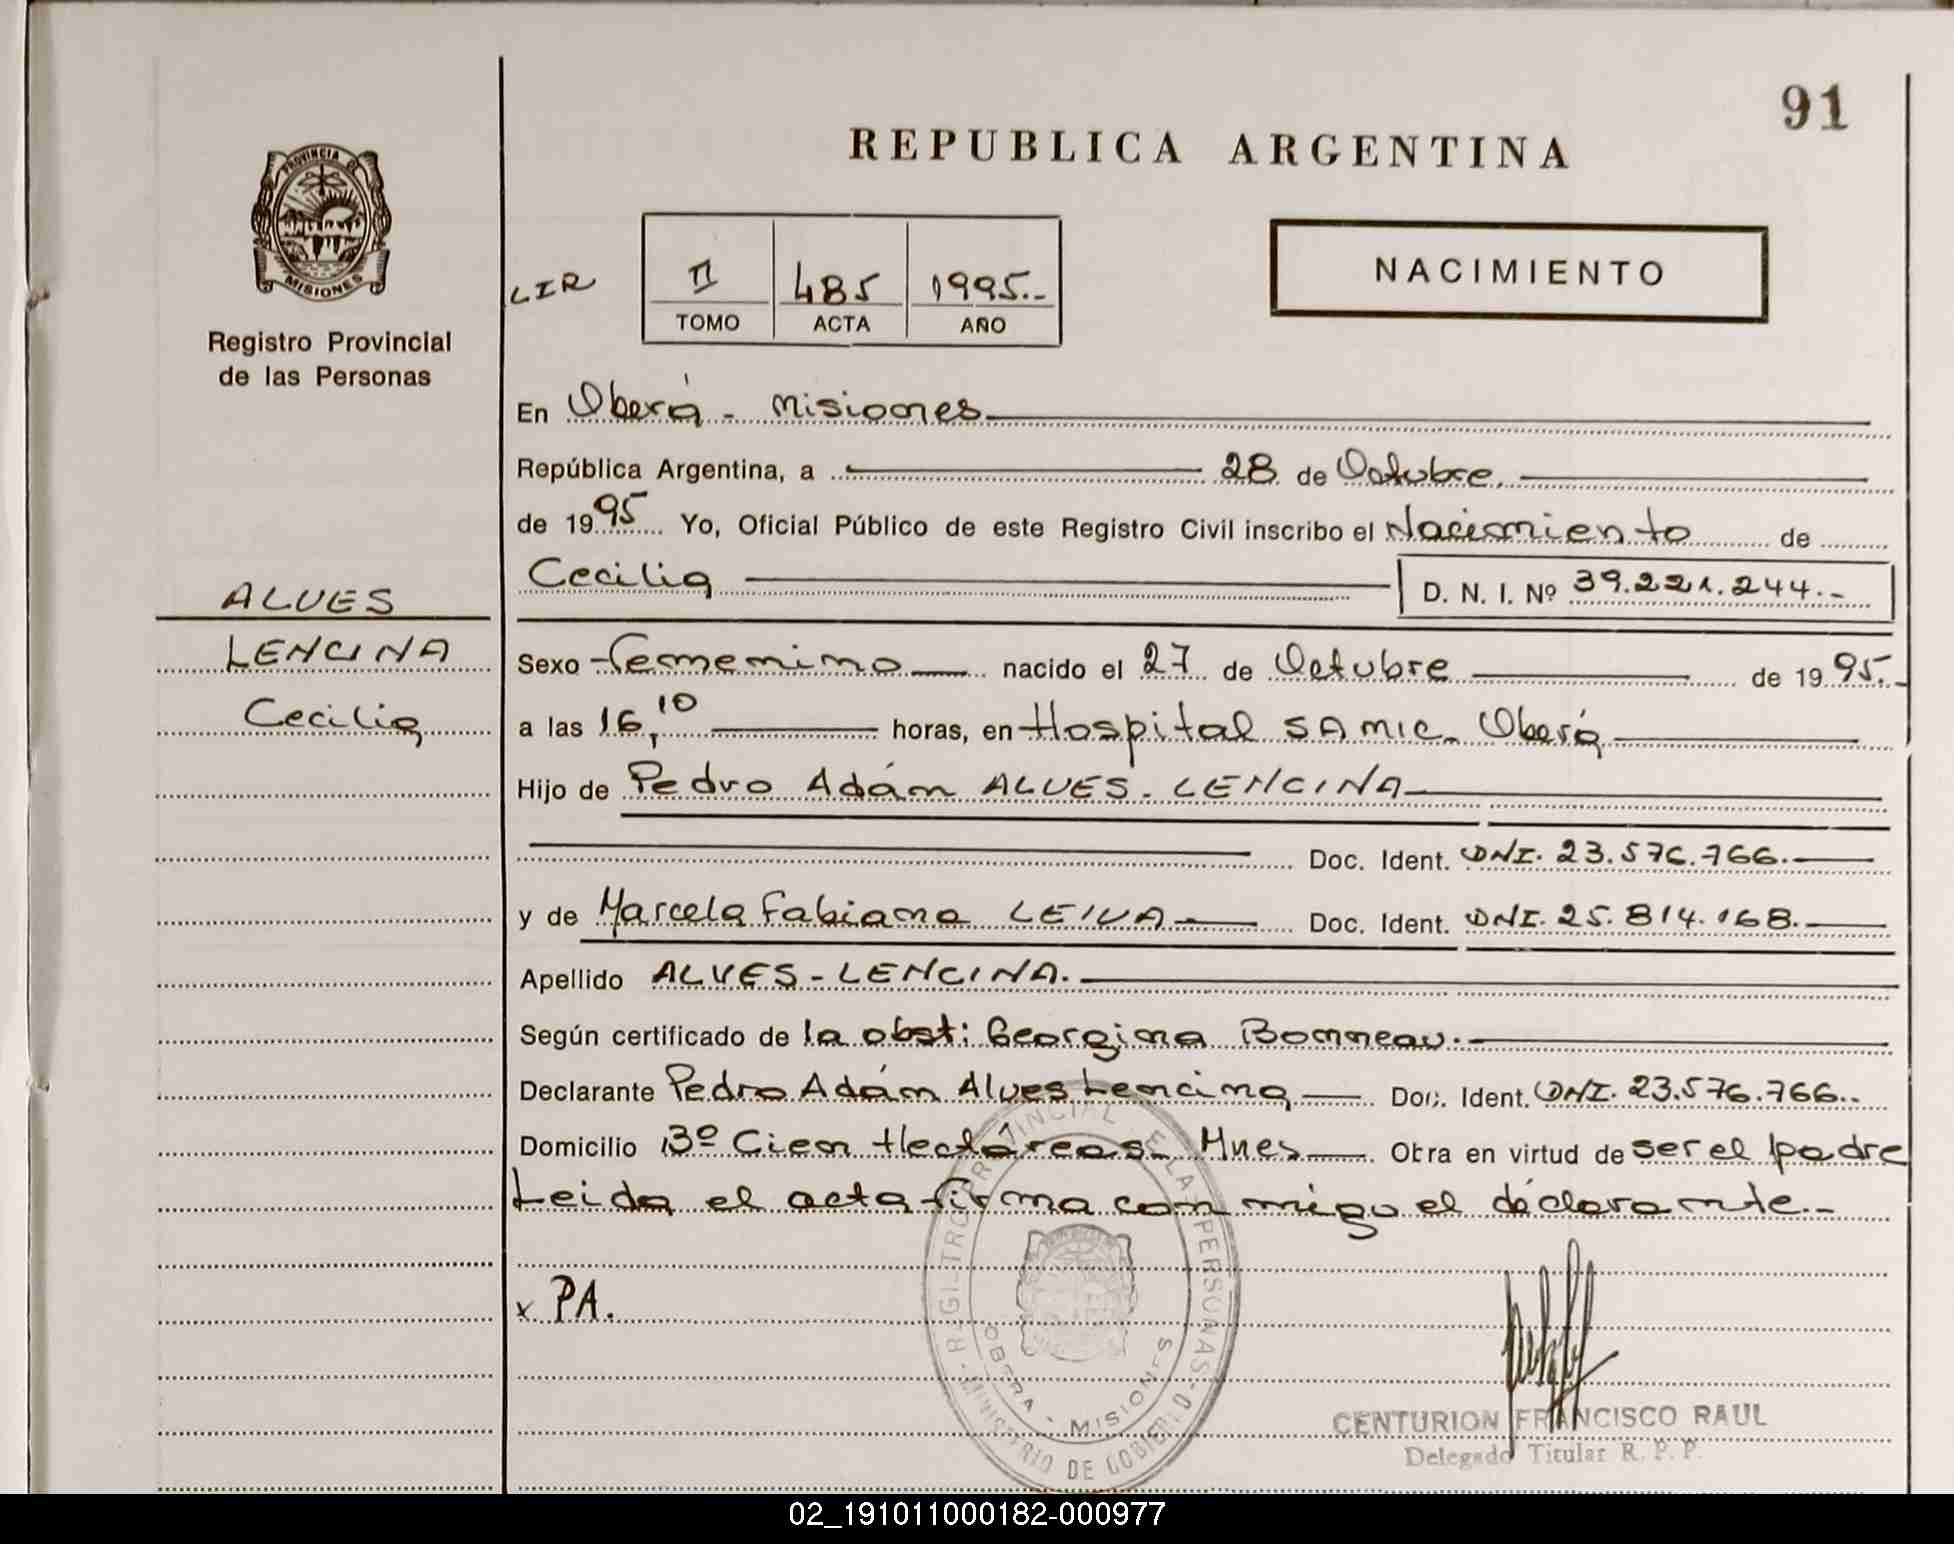 91
REPUBLICA ARGENTINA
PROVINCIA DE
MISIONES
Registro Provincial
de las Personas
LIR
II 485 1995.-
TOMO ACTA AÑO
NACIMIENTO
En Oberá - Misiones
República Argentina, a 28 de Octubre.
de 1995 Yo, Oficial Público de este Registro Civil inscribo el Nacimiento de
Cecilia D. N. I. Nº 39.221.244.-
ALVES
LENCINA
Cecilia
Sexo Femenino nacido el 27 de Octubre de 1995.-
a las 16,10 horas, en Hospital SAMIC. Oberá
Hijo de Pedro Adán ALVES - LENCINA
Doc. Ident. DNI. 23.576.766.
y de Marcela Fabiana LEIVA Doc. Ident. DNI. 25.814.168.
Apellido ALVES - LENCINA.
Según certificado de la obst: Georgina Bonneau.
Declarante Pedro Adán Alves Lencina Doc. Ident. DNI. 23.576.766..
Domicilio Bº Cien Hectáreas - Mnes Obra en virtud de ser el padre
Leida el acta firma con migo el declarante.-
x PA.
REGISTRO PROVINCIAL DE LAS PERSONAS - MINISTERIO DE GOBIERNO
OBERA - MISIONES
CENTURION FRANCISCO RAUL
Delegado Titular R. P. P.
02_191011000182-000977